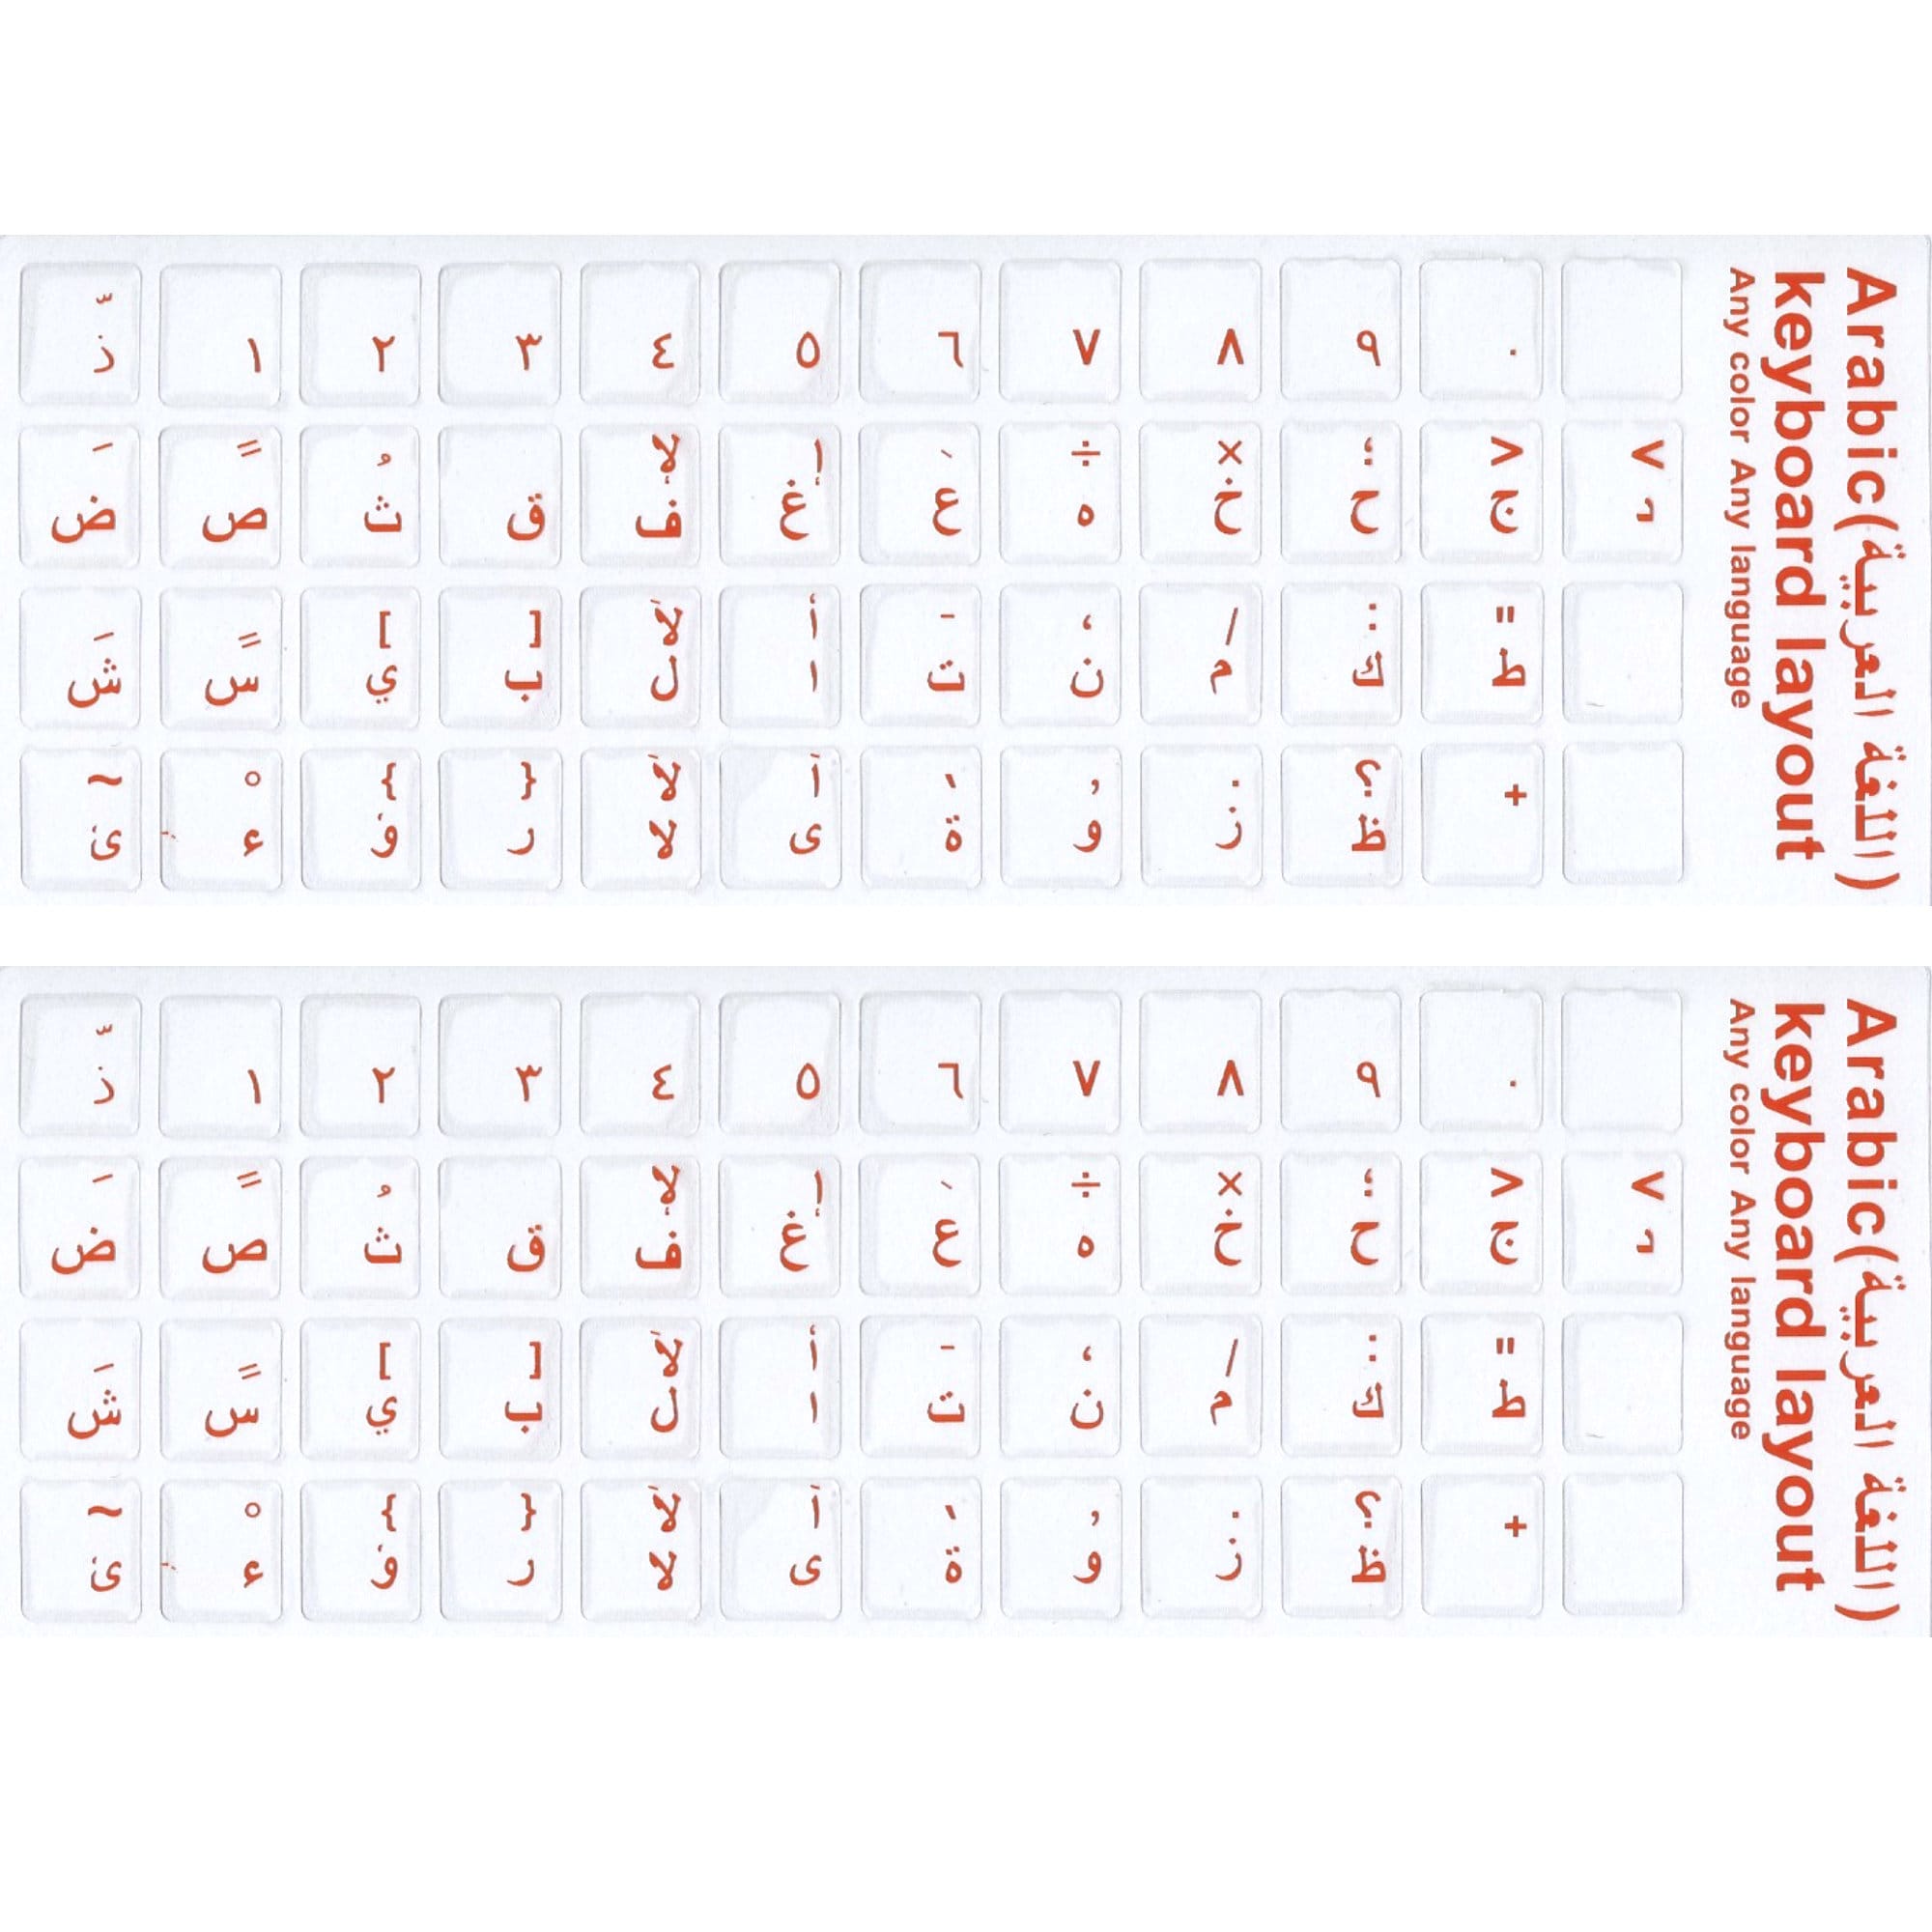 Arabic(اللغة العربية)
keyboard layout
Any color Any language
ّ ١ ٢ ٣ ٤ ٥ ٦ ٧ ٨ ٩ ٠
ذ
َ ً ُ لإ إ ‘ ÷ × ؛ > <
ض ص ث ق ف غ ع ه خ ح ج د
[ ] لأ أ ـ ، / : "
ش س ي ب ل ا ت ن م ك ط
~ ْ { } لآ آ ’ , . ؟ +
ئ ء ؤ ر لا ى ة و ز ظ
Arabic(اللغة العربية)
keyboard layout
Any color Any language
ّ ١ ٢ ٣ ٤ ٥ ٦ ٧ ٨ ٩ ٠
ذ
َ ً ُ لإ إ ‘ ÷ × ؛ > <
ض ص ث ق ف غ ع ه خ ح ج د
[ ] لأ أ ـ ، / : "
ش س ي ب ل ا ت ن م ك ط
~ ْ { } لآ آ ’ , . ؟ +
ئ ء ؤ ر لا ى ة و ز ظ